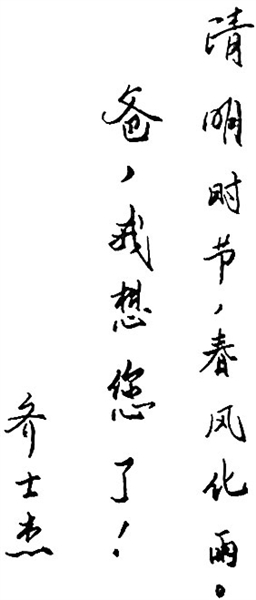 清明时节，春风化雨。
爸，我想您了！
齐士杰